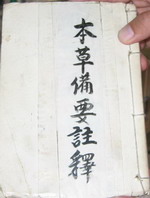 本草備要註釋